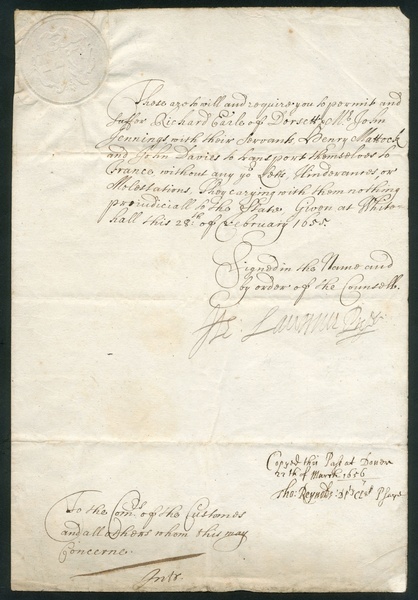 These are to will and require you to permit and
suffer Richard Earle of Dorsett, Mr. John
Jennings with their Servants, Henry Mattock
and John Davies to transport themselves to
France without any yor Letts, Hinderances, or
Molestations. They carying with them nothing
prejudiciall to the State. Given at White-
hall this 28th of February 1655.
Signed in the Name and
by order of the Counsell.
He: Lawrence Presdt
Copyed this Pass at Dover
27th of March 1656
Tho: Reynolds
To the Comrs. of the Customes
and all others whom this may
Concerne.